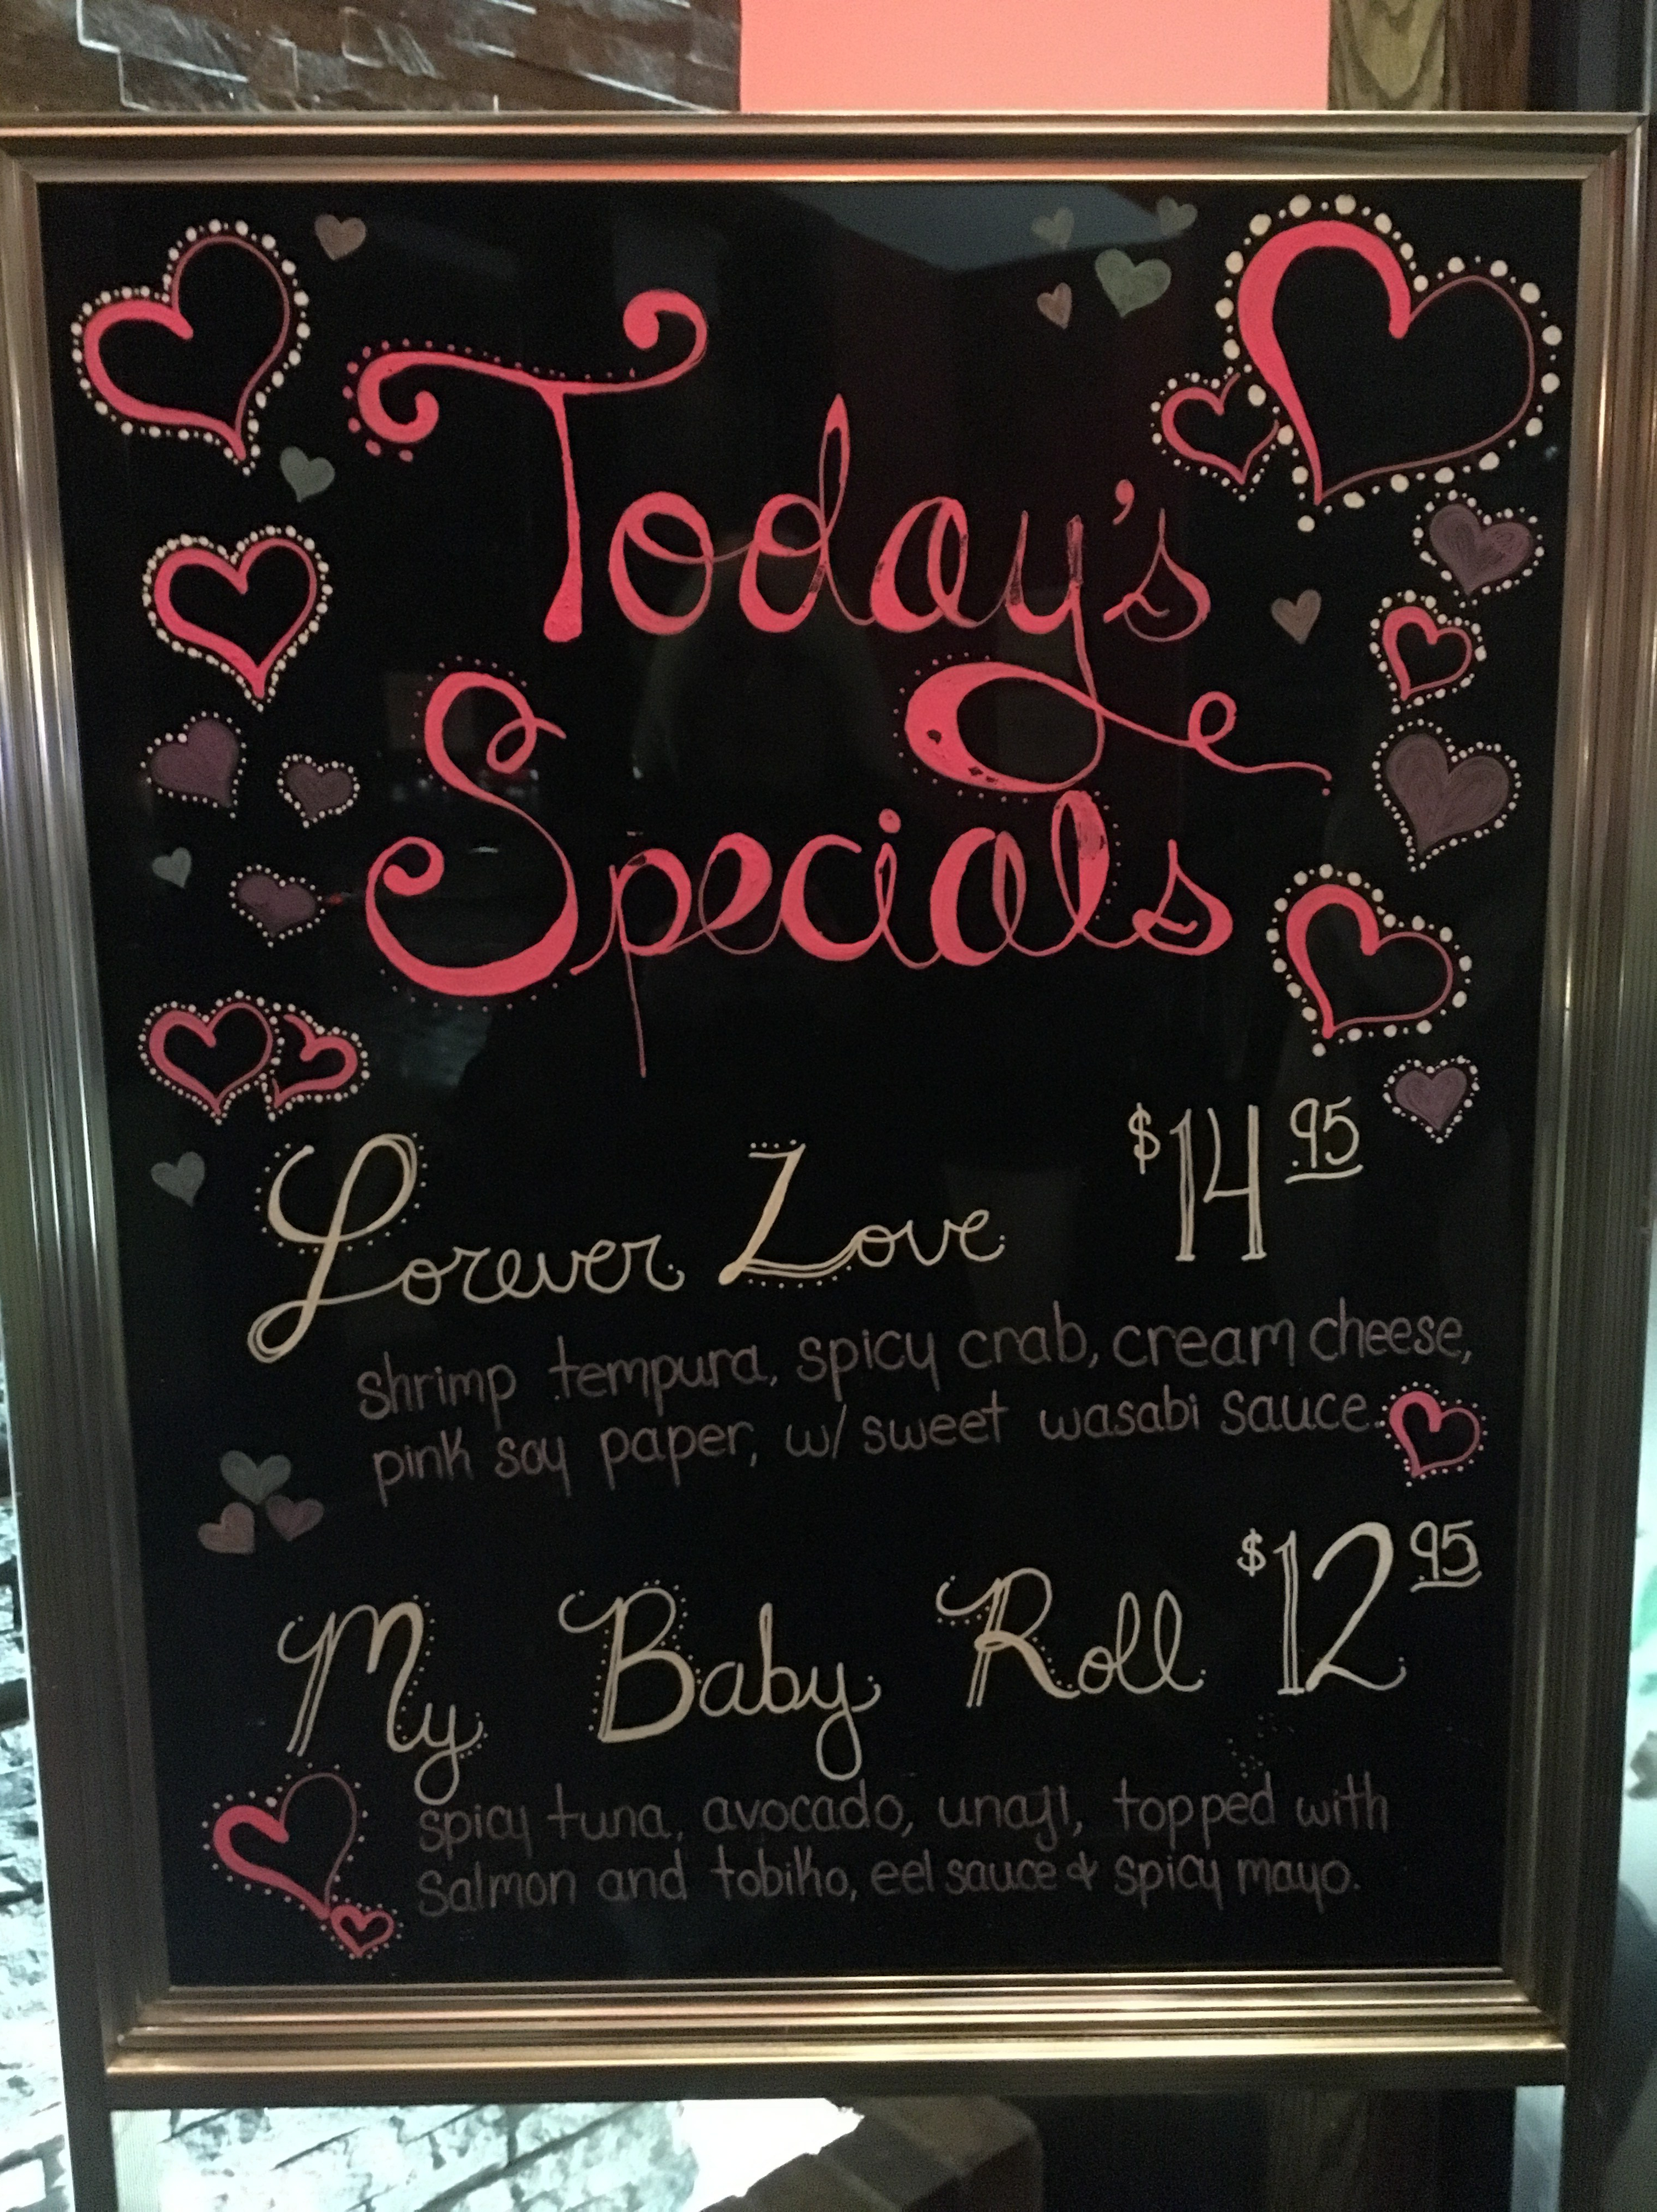 Today's
Specials
Forever Love $14.95
shrimp tempura, spicy crab, cream cheese,
pink soy paper, w/ sweet wasabi sauce.
My Baby Roll $12 95
spicy tuna, avocado, unagi, topped with
salmon and tobiko, eel sauce & spicy mayo.